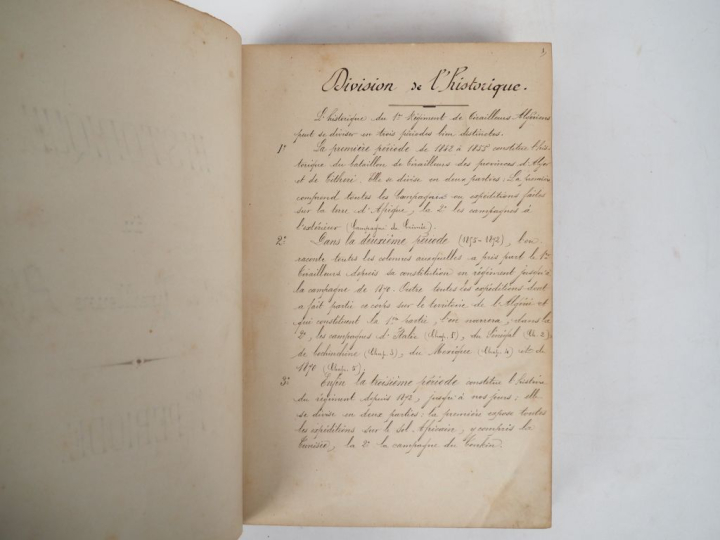 1
Division de l'historique.
L'historique du 1er Régiment de tirailleurs Algériens
peut se diviser en trois périodes bien distinctes.
1° La première période de 1842 à 1855 constitue l'his-
torique du bataillon de tirailleurs des provinces d'Alger
et de Titheri. Elle se divise en deux parties : La première
comprend toutes les Campagnes ou expéditions faites
sur la terre d'Afrique, la 2e les campagnes à
l'extérieur (Campagne de Crimée).
2° Dans la deuxième période (1855-1872), l'on
raconte toutes les colonnes auxquelles a pris part le 1er
tirailleurs depuis sa constitution en régiment jusqu'à
la campagne de 1870. Outre toutes les expéditions dont
a fait partie ce corps sur le territoire de l'Algérie et
qui constituent la 1ere partie, l'on narrera, dans la
2e, les campagnes d'Italie (Chap. 1), du Sénégal (Ch. 2)
de Cochinchine (Chap. 3), du Mexique (Chap. 4) et de
1870 (Chap. 5).
3° Enfin la troisième période constitue l'histoire
du régiment depuis 1872, jusqu'à nos jours : elle
se divise en deux parties : la première expose toutes
les expéditions sur le sol Africain, y compris la
Tunisie, la 2e la campagne du Tonkin.